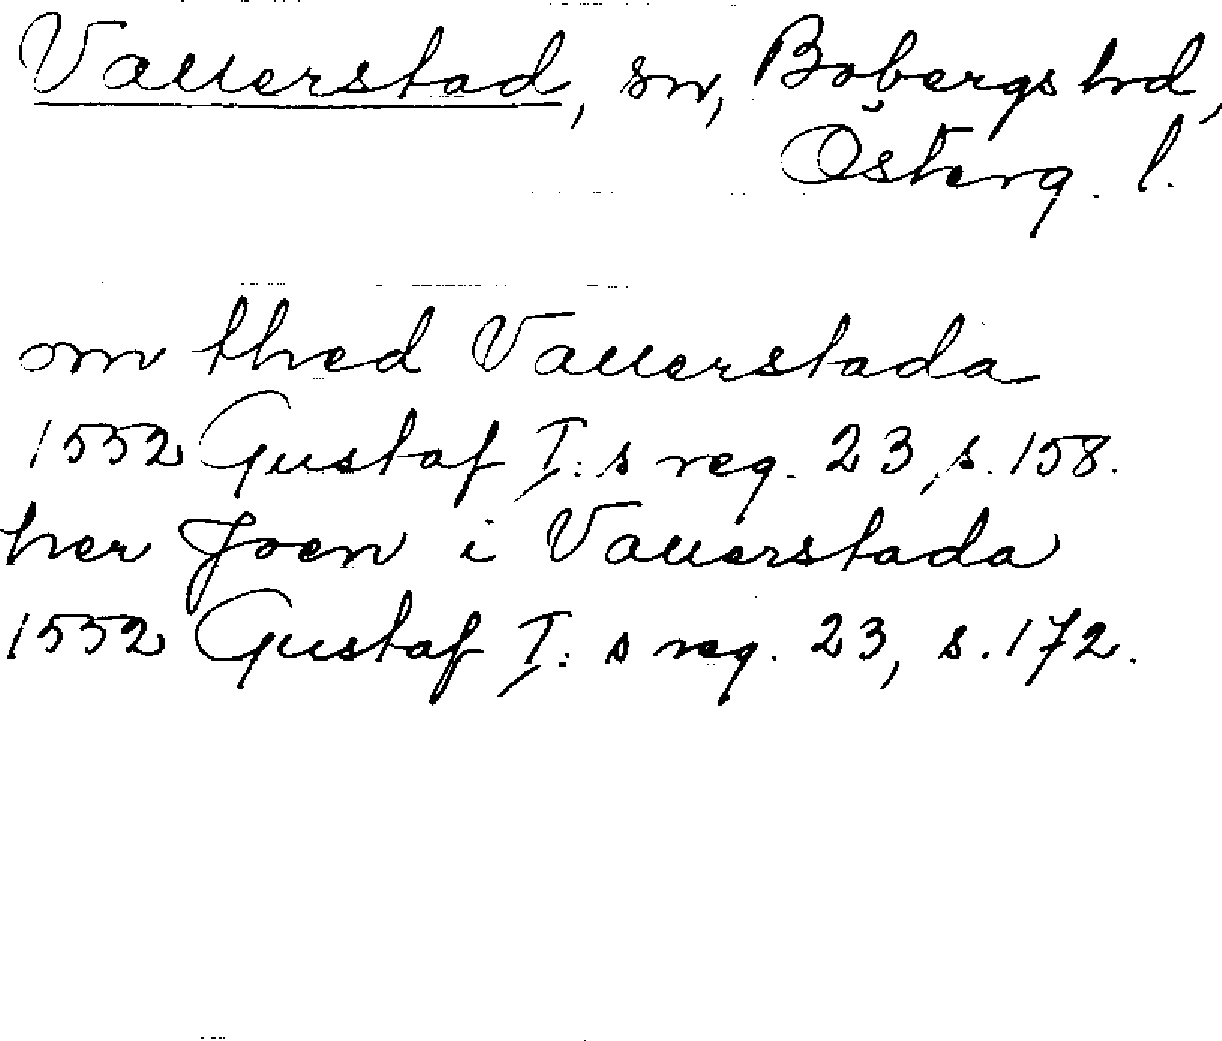 Vallerstad, sn, Bobergs hd,
Österg. l.
om thed Vallerstada
1552 Gustaf I:s reg. 23, s. 158.
her Joen i Vallerstada
1552 Gustaf I:s reg. 23, s. 172.